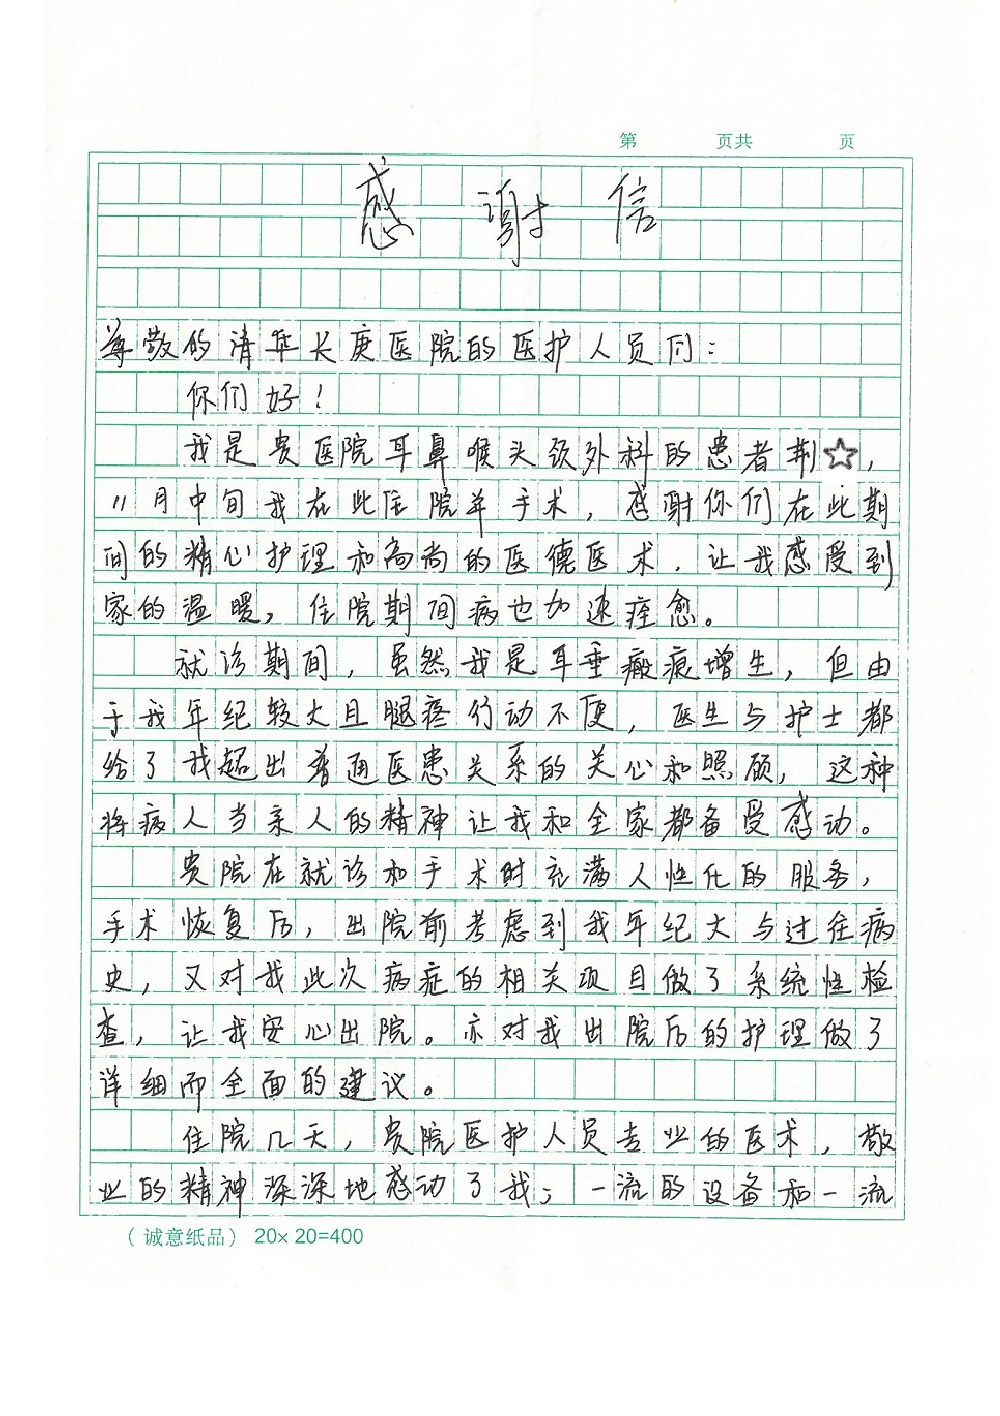 第 页共 页
感谢信
尊敬的清华长庚医院的医护人员们：
你们好！
我是贵医院耳鼻喉头颈外科的患者荆☆，
11月中旬我在此住院并手术，感谢你们在此期
间的精心护理和高尚的医德医术，让我感受到
家的温暖，住院期间病也加速痊愈。
就诊期间，虽然我是耳垂瘢痕增生，但由
于我年纪较大且腿疼行动不便，医生与护士都
给了我超出普通医患关系的关心和照顾，这种
将病人当亲人的精神让我和全家都备受感动。
贵院在就诊和手术时充满人性化的服务，
手术恢复后，出院前考虑到我年纪大与过往病
史，又对我此次病症的相关项目做了系统性检
查，让我安心出院。亦对我出院后的护理做了
详细而全面的建议。
住院几天，贵院医护人员专业的医术，敬
业的精神深深地感动了我；一流的设备和一流
（诚意纸品）20×20=400